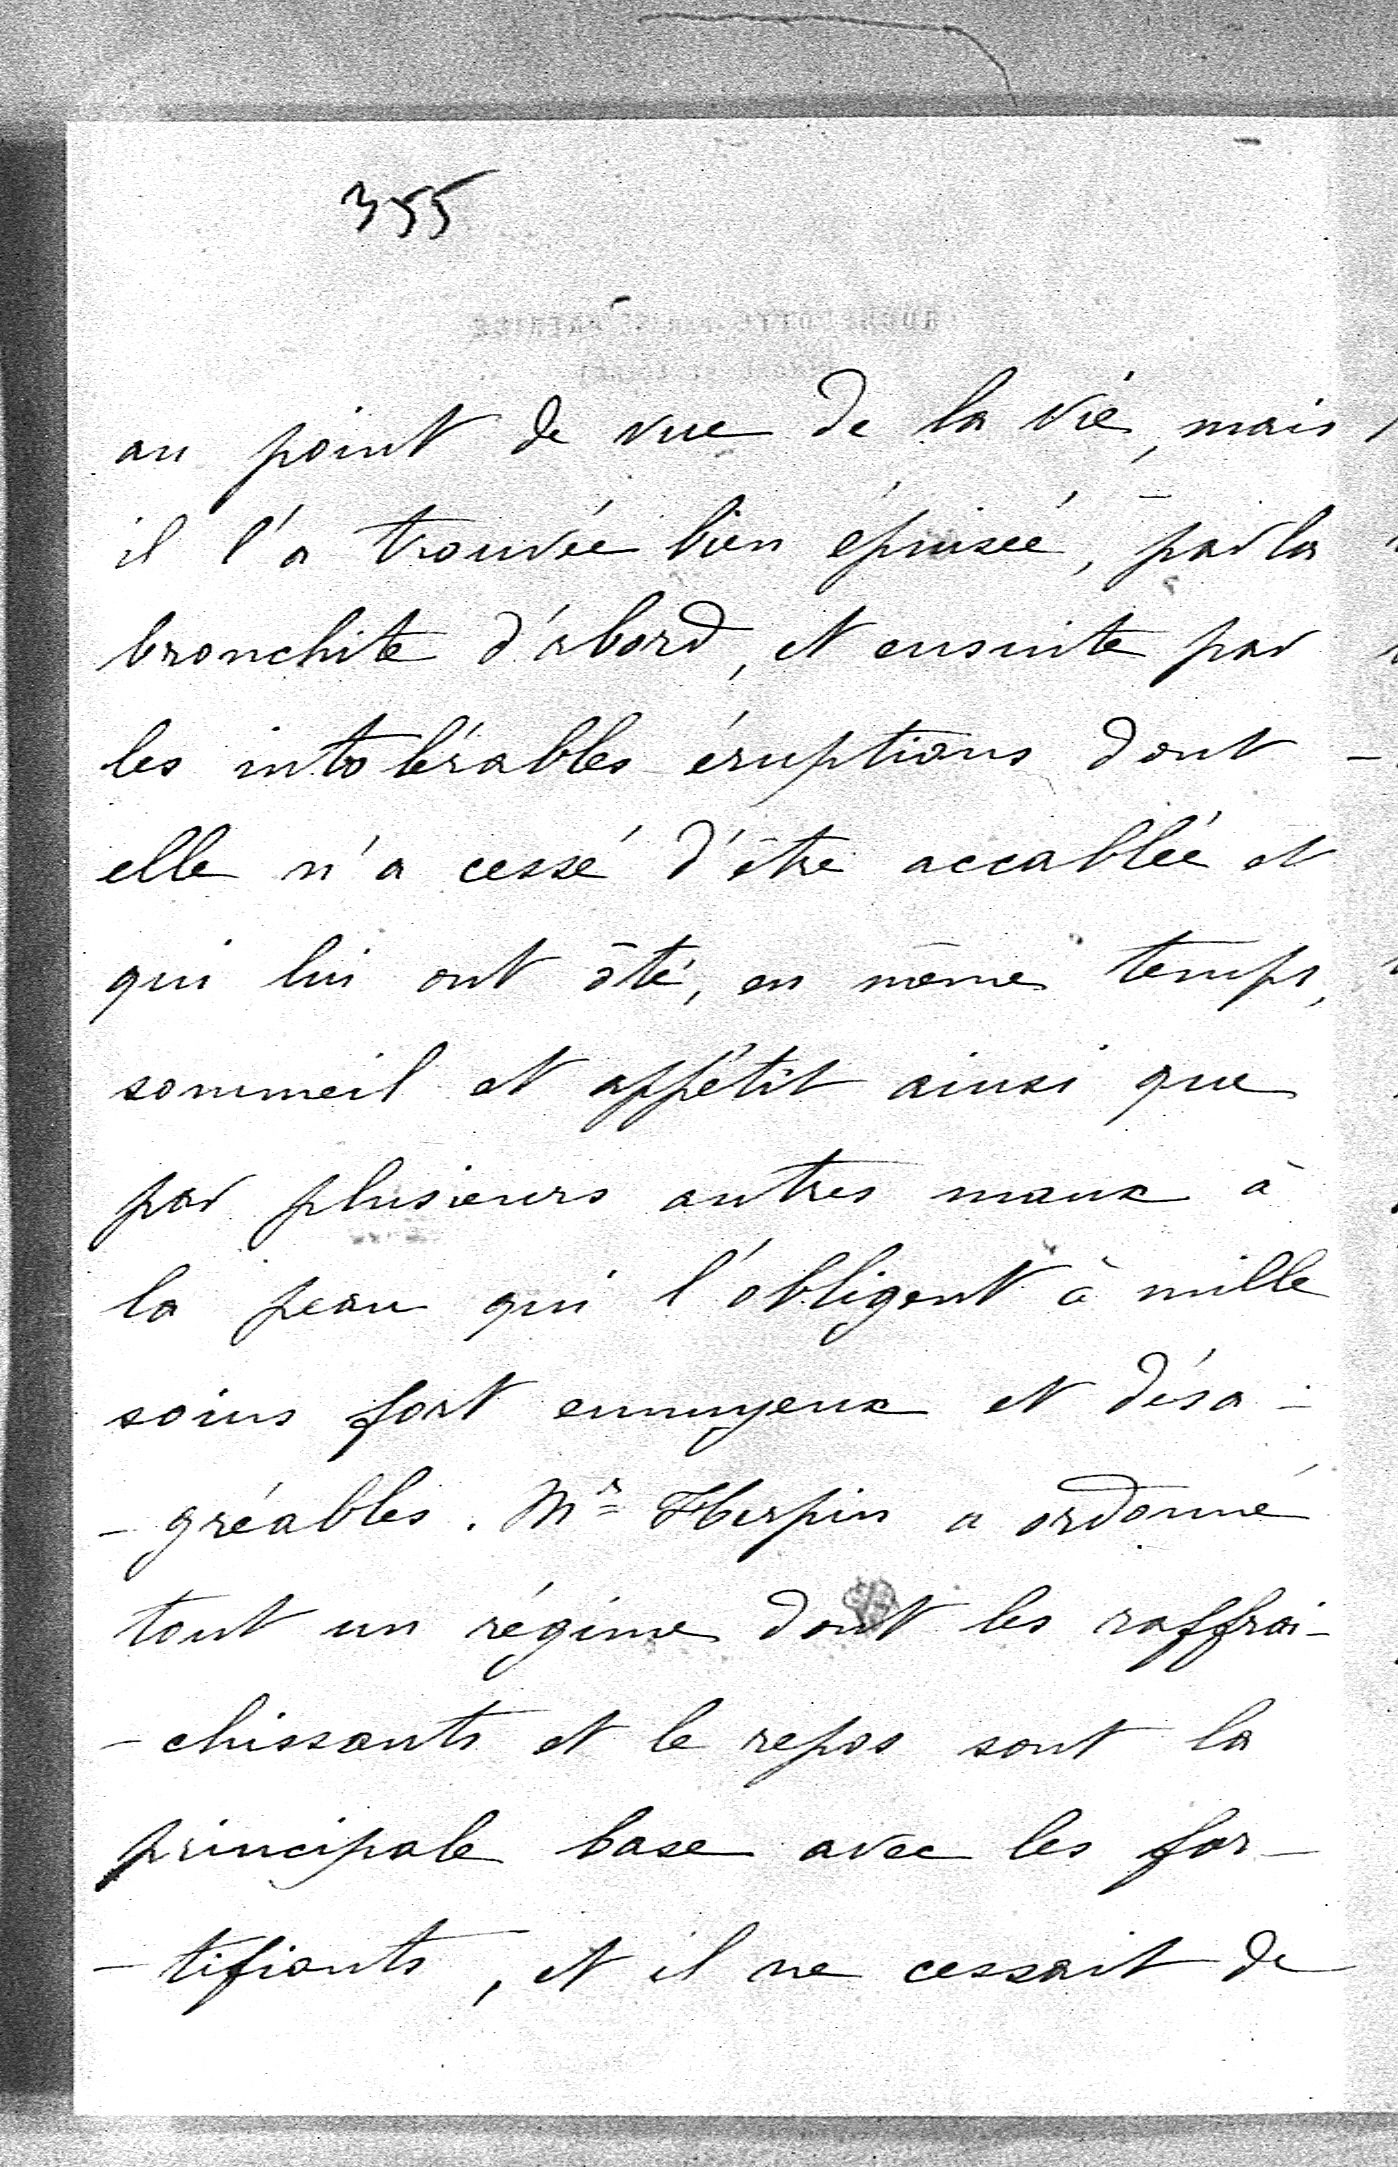 355
au point de vue de la vie, mais
il l'a trouvée bien épuisée, par la
bronchite d'abord, et ensuite par
les intolérables éruptions dont
elle n'a cessé d'être accablée et
qui lui ont ôté, en même temps,
sommeil et appétit ainsi que
par plusieurs autres maux à
la peau qui l'obligent à mille
soins fort ennuyeux et désa-
-gréables. Mr Herpin a ordonné
tout un régime dont les raffrai-
-chissants et le repos sont la
principale base avec les for-
-tifiants, et il ne cessait de